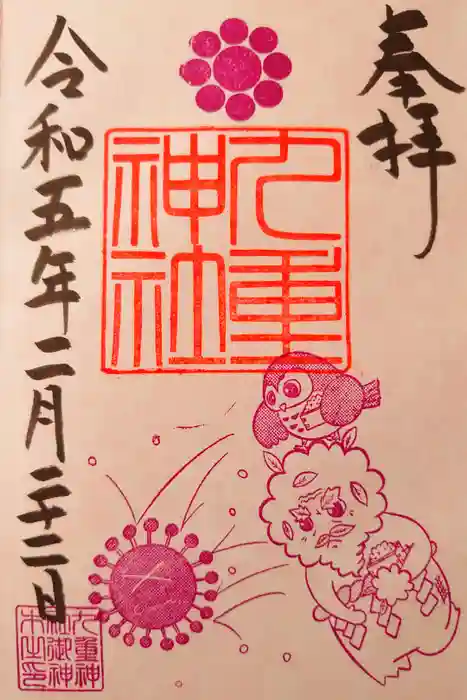 奉拝
九重
神社
令和五年二月二十二日
九重神
社御神
木之印